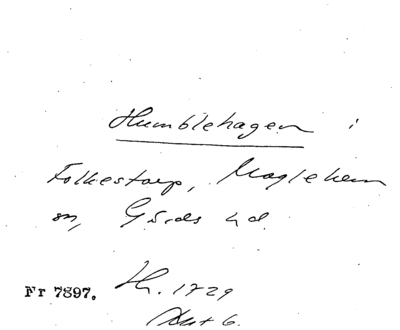 Humblehagen i
Folkestorp, Maglehem
sn, Gärds hd.
Fr 7897. Hh. 1729
Akt 6.